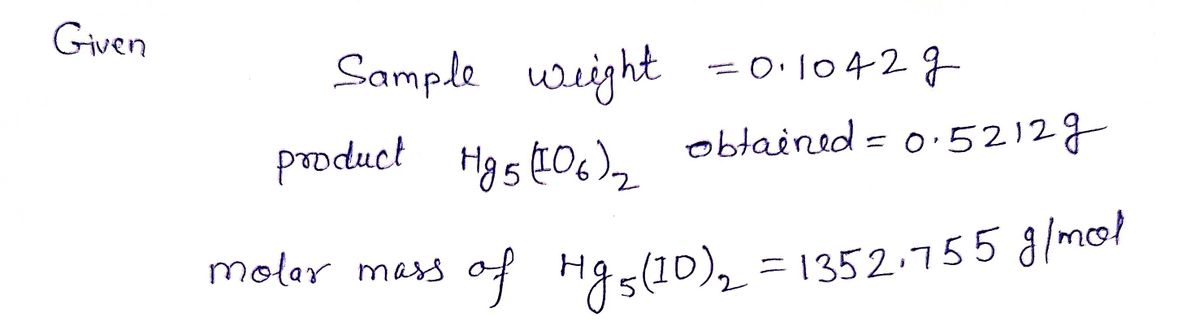 Given
Sample weight = 0.1042 g
product Hg5(IO6)2 obtained = 0.5212 g
molar mass of Hg5(IO)2 = 1352.755 g/mol